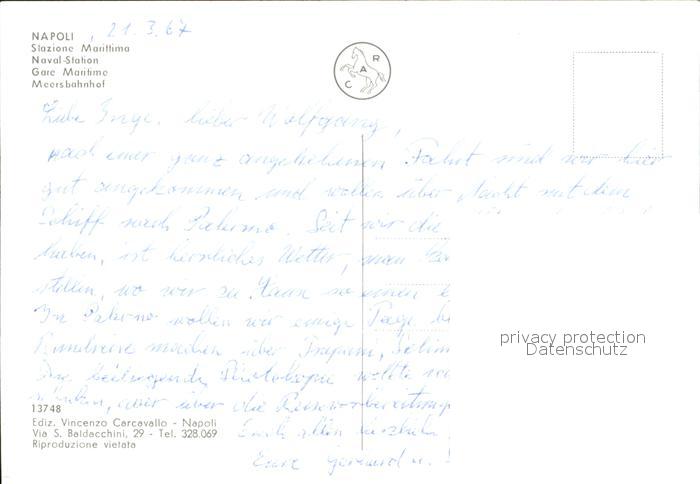 NAPOLI, 21.3.67
Stazione Marittima
Naval-Station
Gare Maritime
Meersbahnhof
C A R
Liebe Inge, lieber Wolfgang,
nach einer ganz angenehmen Fahrt sind wir hier
gut angekommen und wollen über Nacht mit dem
Schiff nach Palermo. Seit wir die
haben, ist herrliches Wetter, man
stellen, wo wir zu Hause so einen
In Palermo wollen wir einige Tage
Rundreise machen über Trapani,
Die beiliegende Fotokopie wollte
aber über die Reisevorbereitung
Euch allen herzlich
Eure Gerhard u.
privacy protection
Datenschutz
13748
Ediz. Vincenzo Carcavallo - Napoli
Via S. Baldacchini, 29 - Tel. 328.069
Riproduzione vietata